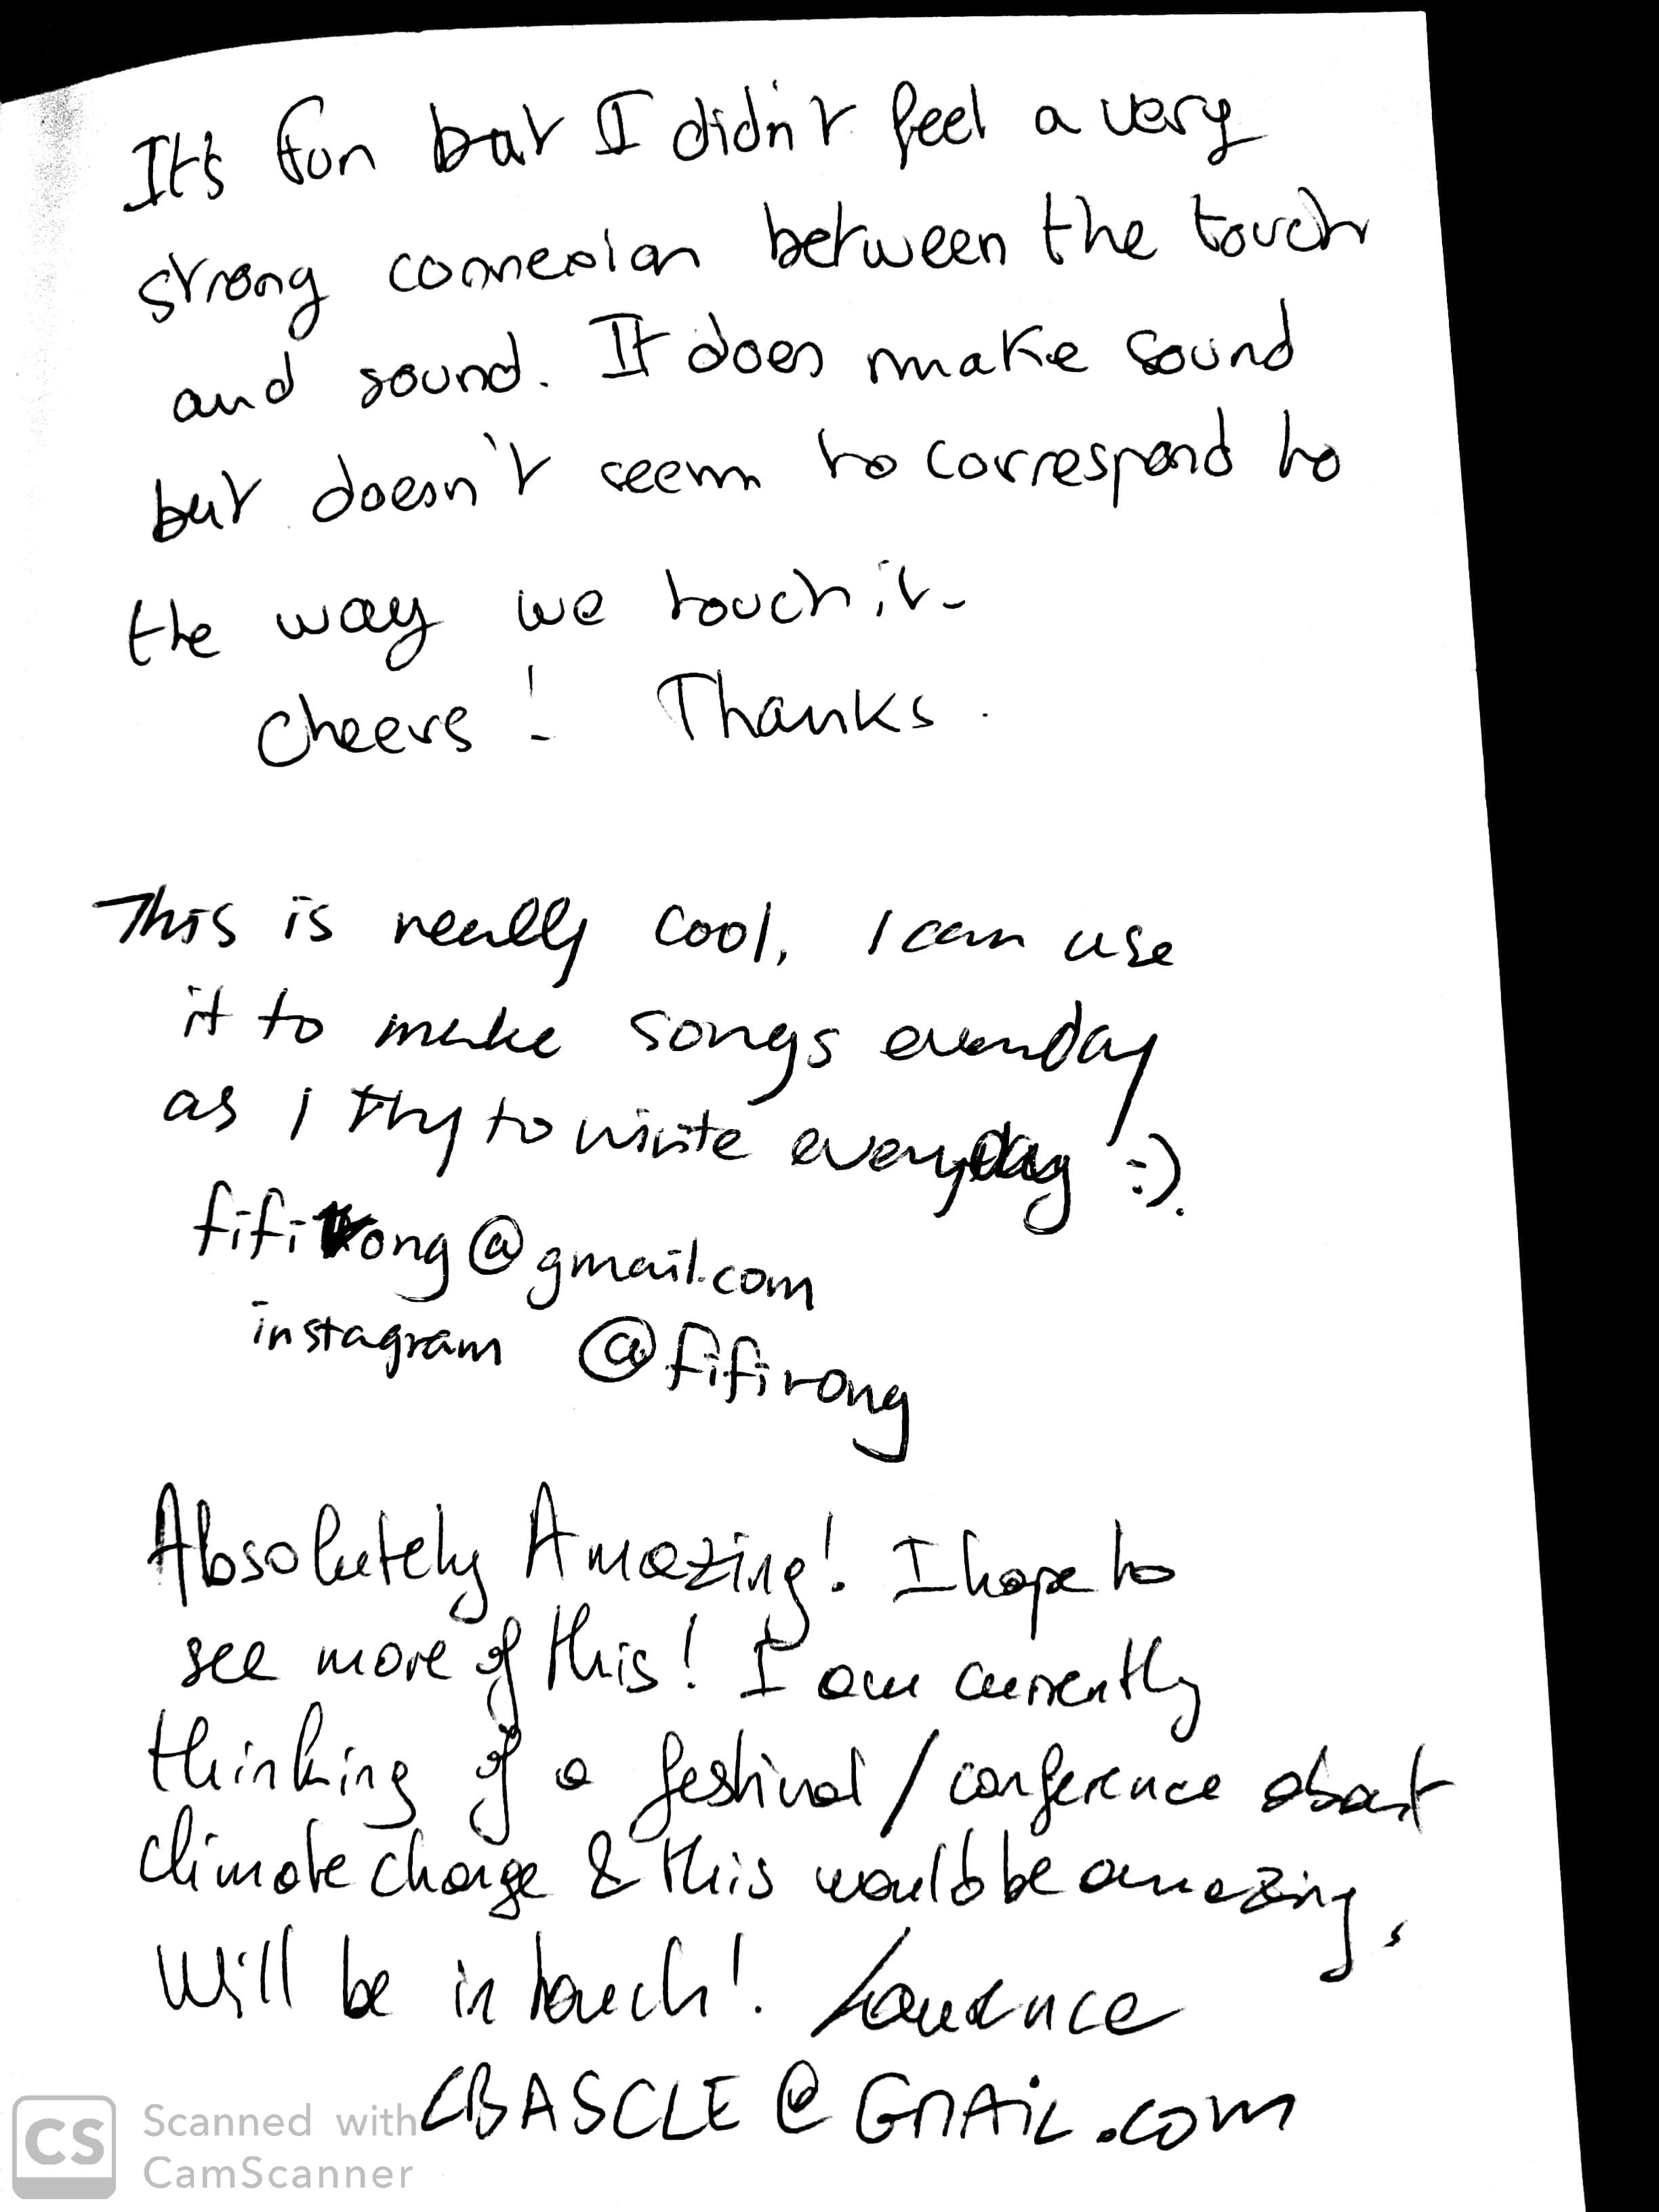 It's fun but I didn't feel a very
strong connexion between the touch
and sound. It does make sound
but doesn't seem to correspond to
the way we touch it.
Cheers! Thanks.
This is really cool, I can use
it to make songs everyday
as I try to write everyday :).
fifirong@gmail.com
instagram @fifirong
Absolutely Amazing! I hope to
see more of this! I am currently
thinking of a festival / conference about
climate change & this would be amazing,
Will be in touch! Laurence
LBASCLE@GMAiL.com
CS Scanned with
CamScanner